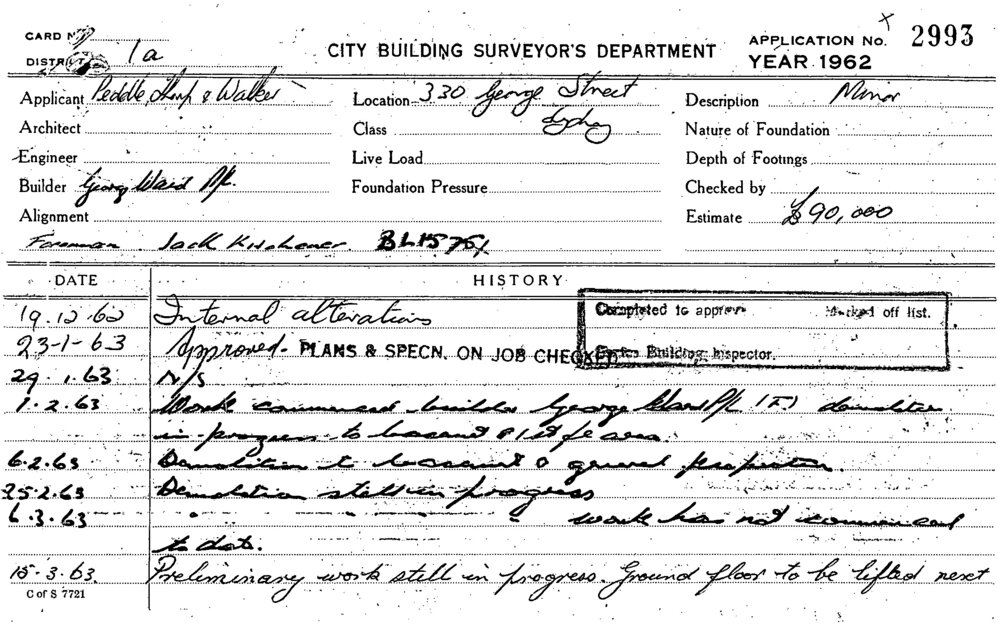 CARD No
DISTRICT 1a
CITY BUILDING SURVEYOR'S DEPARTMENT
APPLICATION No. 2993
YEAR 1962
Applicant Peddle Thorp & Walker
Location 330 George Street
Sydney
Description Minor
Architect
Class
Nature of Foundation
Engineer
Live Load
Depth of Footings
Builder George Ward P/L.
Foundation Pressure
Checked by
Alignment
Estimate £90,000
Foreman Jack Kitchener. BL1575/1
DATE HISTORY
19.12.62 Internal alterations
Completed to approv Marked off list.
23-1-63 Approved. PLANS & SPECN. ON JOB CHECKED
Building Inspector.
29.1.63 N/S
1.2.63 Work commenced builder George Ward P/L (F) demolition
in progress to basement & 1st fl area.
6.2.63 Demolition to basement & general preparation.
25.2.63 Demolition still in progress
6.3.63 " " " " work has not commenced
to date.
15.3.63. Preliminary work still in progress. Ground floor to be lifted next
C of S 7721